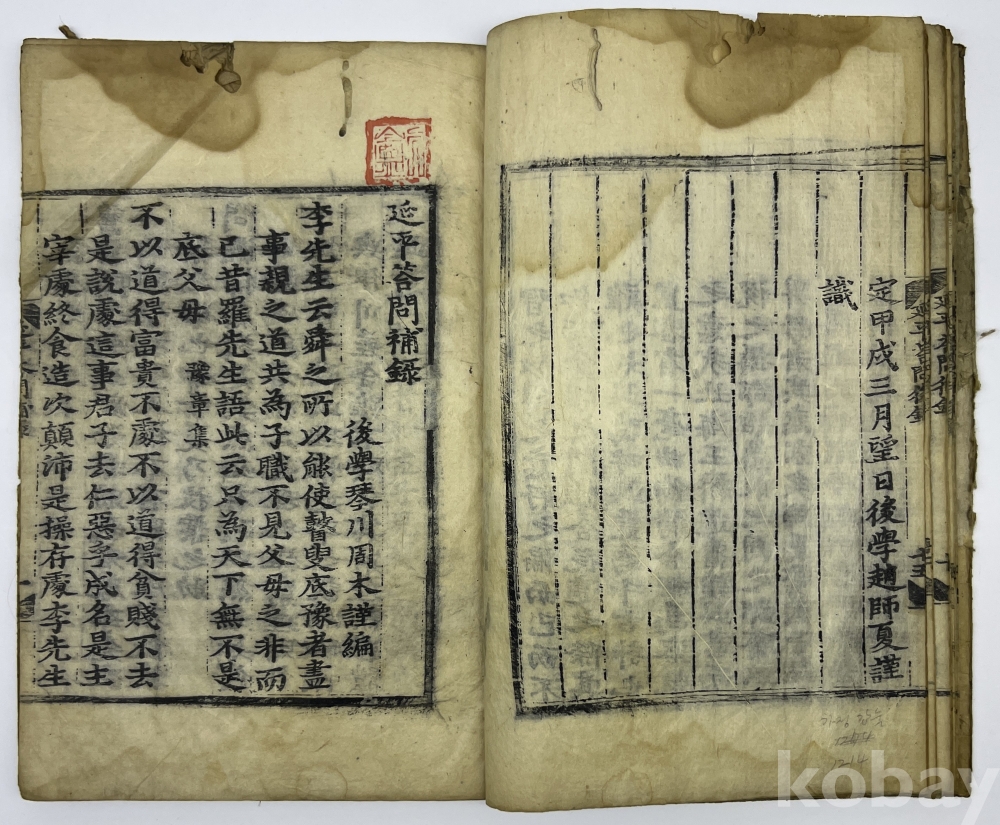 定甲戌三月望日後學趙師夏謹
識
延平答問後錄
延平答問補錄
後學琴川周木謹編
李先生云舜之所以能使瞽叟底豫者盡
事親之道共為子職不見父母之非而
已昔羅先生語此云只為天下無不是
底父母 豫章集
不以道得富貴不處不以道得貧賤不去
是說處這事君子去仁惡乎成名是主
宰處終食造次顛沛是操存處李先生
12-14
kobay